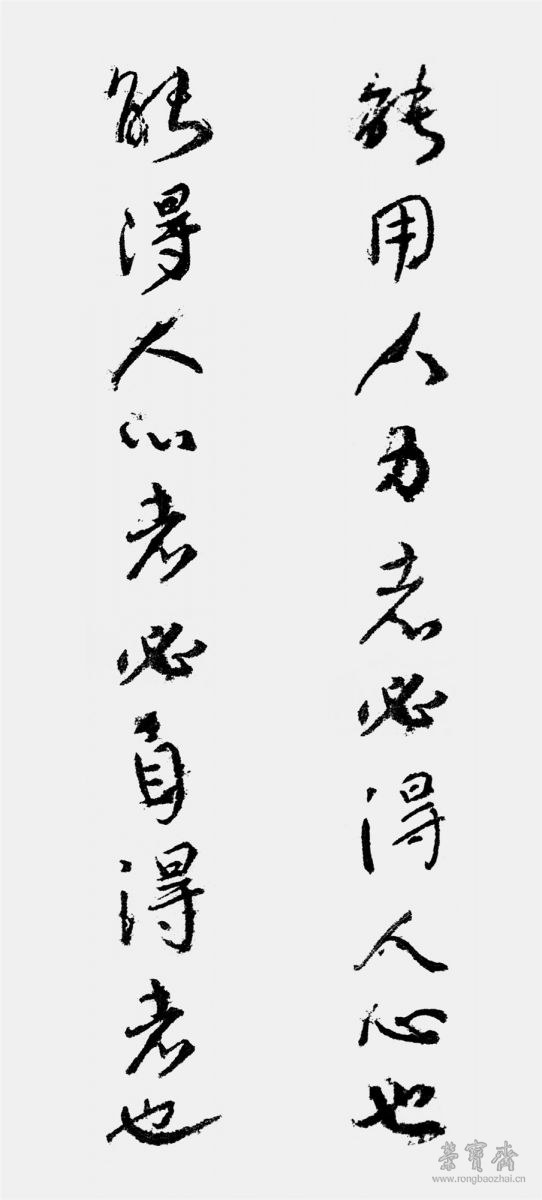 能用人力者必得人心也
能得人心者必自得者也
榮寶齋
www.rongbaozhai.cn